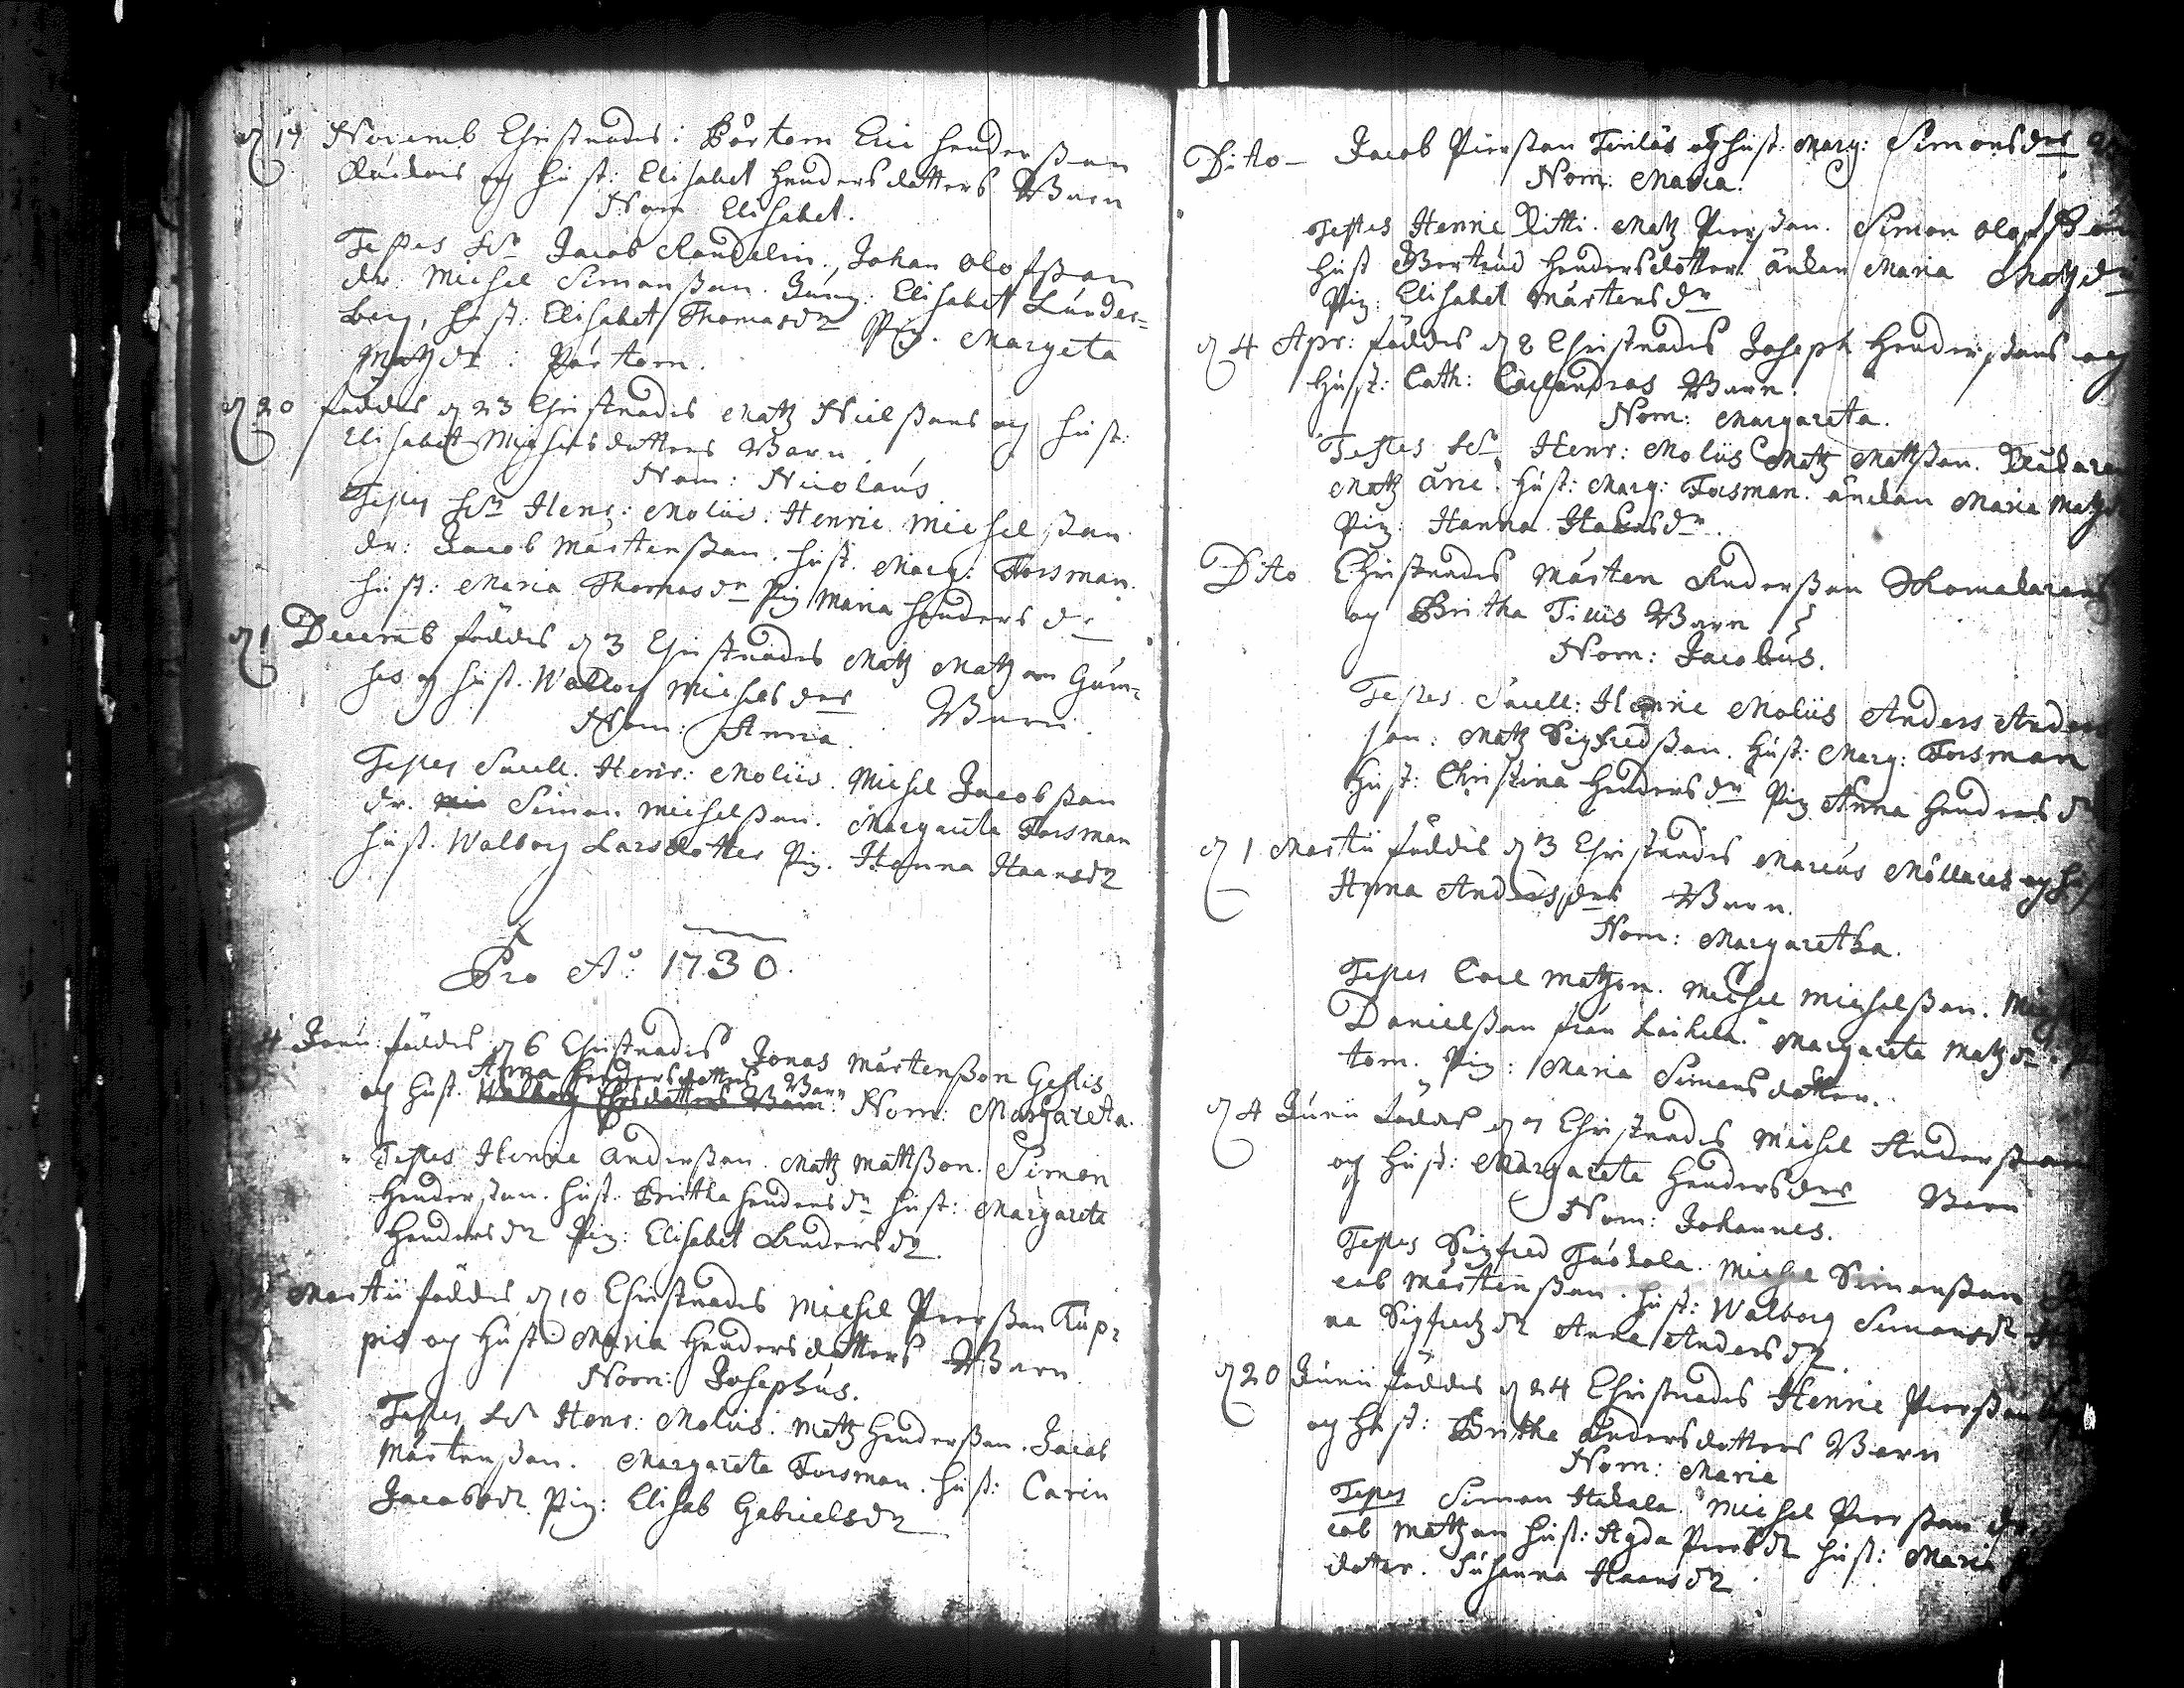 d 17 Novemb Christnades: Börtom Eric Hendersßan
och hust: Elisabet Hendersdotters Barn
Nom Elisabet.
Testes Hr Jacob Randelin, Johan Olofsßan
dr. Michel Simonsßan. Jung. Elisabet Lunder=
berg, hust: Elisabet Thomasdr Pig. Margeta
Matzdr: Pörtom.
d 20 föddes d 23 Christnades Matz Nielsßans og hust:
Elisabet Michelsdotters Barn
Nom: Nicolaus
Testes Hr Henr: Moliis. Henric Michelsßan
dr: Jacob Mårtensßan. hust. Marg: Forsman.
hust: Maria Thomasdr Pig Maria Hendersdr
d 1 Decemb föddes d 3 Christnades Matz Matzon Gum=
og hust. Walborg Michelsdrs Barn.
Nom: Anna.
Testes Sacell. Henr: Moliis. Michel Jacobsßan
dr. Simon Michelsßan. Margareta Forsman
hust. Walborg Larsdotter Pig. Hanna Haansdr
Pro Ao: 1730.
4 Janu: föddes d 6 Christnades Jonas Mårtensßon
Anna Hendersdotters Barn
og hust. Walborg Barn: Nom: Margareta.
Testes Henric Andersßan. Matz Mattsßon. Simon
Hendersßan. hust. Britha Hendersdr hust: Margareta
Hendersdr Pig: Elisabet Andersdr.
Martii föddes d 10 Christnades Michel Piersßan Kup=
pis og hust: Maria Hendersdotters Barn.
Nom: Josephus.
Testes Hr Henr: Moliis. Matz Hendersßan. Jacob
Mårtensßan. Margareta Forsman. hust: Carin
Jacobsdr. Pig: Elisab Gabrielsdr
Dito - Jacob Piersßan og hust. Marg: Simonsdrs
Nom: Maria.
Testes Henric Matz Piersßan. Simon Olofsßan
hust Bertrud Hendersdotter. änkan Maria Matzdr
Pig: Elisabet Mårtensdr
d 4 Apr: föddes d 8 Christnades Joseph Hendersßans og
hust: Cath: Barn.
Nom: Margareta.
Testes Hr Henr: Moliis Matz Mattsßan.
Matz hust: Marg: Forsman. änckan Maria
Pig: Hanna Haansdr.
Dito Christnades Mårten Andersßan
og Britha Barn
Nom: Jacobus.
Testes Sacell: Henric Moliis Anders Anders
son. Matz Sigfredsßan. hust: Marg: Forsman
hust: Christina Hendersdr Pig Anna Hendersdr
d 1 Martii föddes d 3 Christnades Marcus Möllares og
Anna Andersdrs Barn.
Nom: Margaretha.
Testes Carl Matzon. Michel Michelsßan.
Danielsßan från Margareta Matzdr.
tom. Pig: Maria Simonsdotter.
d 4 Junii föddes d 7 Christnades Michel Andersßan
og hust: Margareta Hendersdrs Barn
Nom: Johannes.
Testes Sigfred Michel Simonsßan
cob Mårtensßan. hust: Walborg Simonsdr
na Sigfredzdr Anna Andersdr.
d 20 Junii föddes d 24 Christnades Henric Piersßan
og hust: Britha Andersdotters Barn
Nom: Maria
Testes Simon Hakala. Michel Piersßan
cob Matzon hust: Agda Piersdr hust: Maria
dotter. Susanna Haansdr